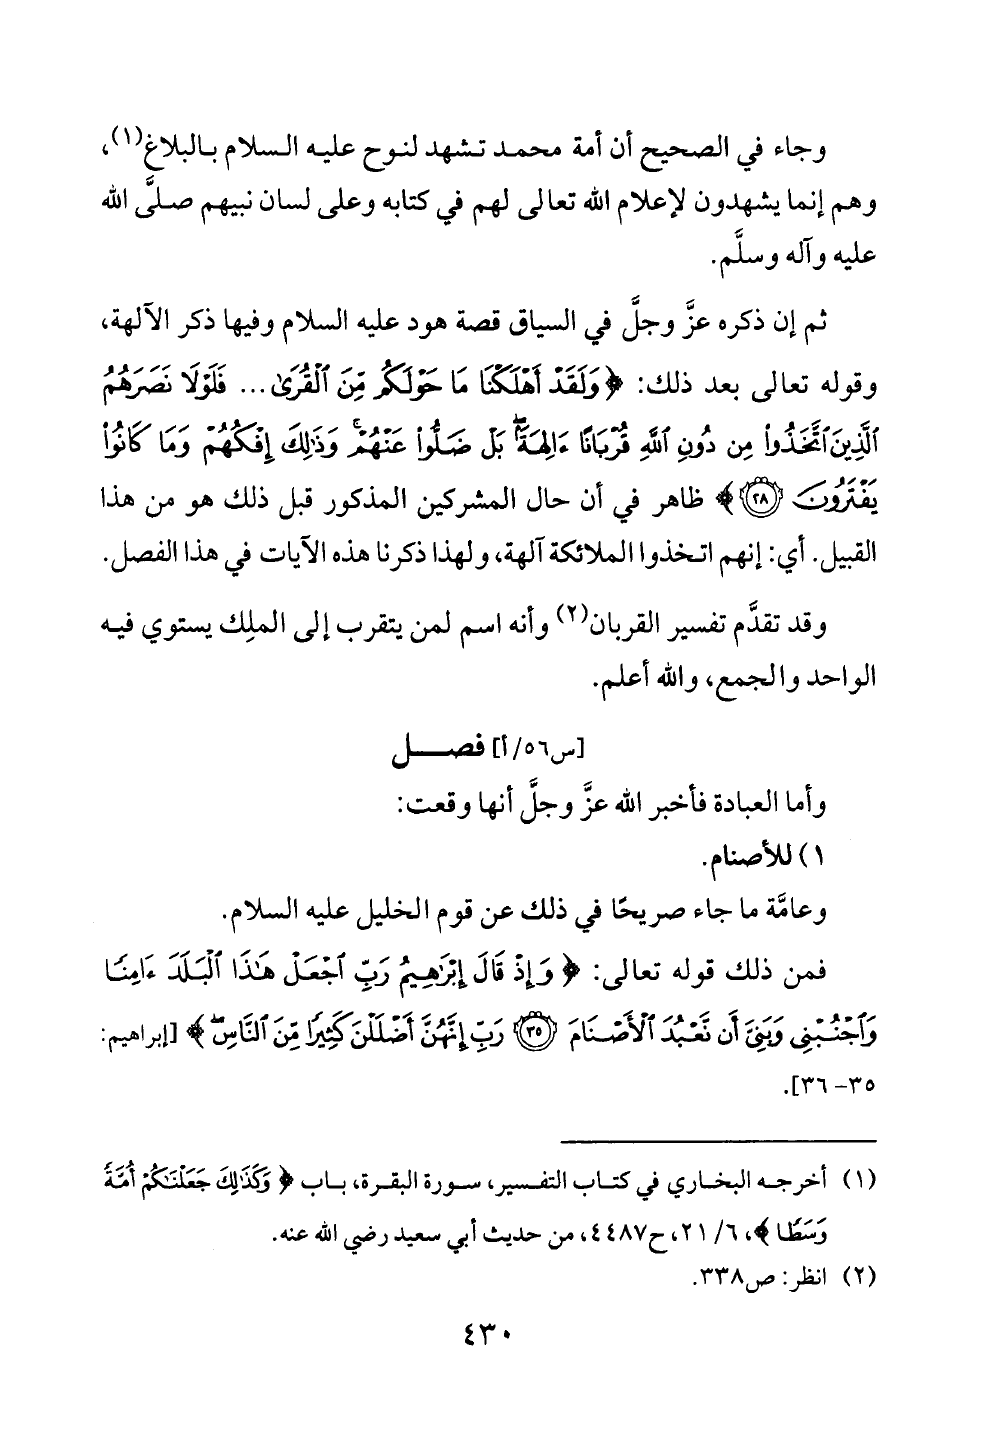 وجاء في الصحيح أن أمة محمد تشهد لنوح عليه السلام بالبلاغ(١)،
وهم إنما يشهدون لإعلام الله تعالى لهم في كتابه وعلى لسان نبيهم صلَّى الله
عليه وآله وسلَّم.
ثم إن ذكره عزَّ وجلَّ في السياق قصة هود عليه السلام وفيها ذكر الآلهة،
وقوله تعالى بعد ذلك: ﴿وَلَقَدْ أَهْلَكْنَا مَا حَوْلَكُم مِّنَ ٱلْقُرَىٰ... فَلَوْلَا نَصَرَهُمُ
ٱلَّذِينَ ٱتَّخَذُوا۟ مِن دُونِ ٱللَّهِ قُرْبَانًا ءَالِهَةًۢ ۖ بَلْ ضَلُّوا۟ عَنْهُمْ ۚ وَذَٰلِكَ إِفْكُهُمْ وَمَا كَانُوا۟
يَفْتَرُونَ ٢٨﴾ ظاهر في أن حال المشركين المذكور قبل ذلك هو من هذا
القبيل. أي: إنهم اتخذوا الملائكة آلهة، ولهذا ذكرنا هذه الآيات في هذا الفصل.
وقد تقدَّم تفسير القربان(٢) وأنه اسم لمن يتقرب إلى الملِك يستوي فيه
الواحد والجمع، والله أعلم.
[س٥٦/أ] فصـــل
وأما العبادة فأخبر الله عزَّ وجلَّ أنها وقعت:
١) للأصنام.
وعامَّة ما جاء صريحًا في ذلك عن قوم الخليل عليه السلام.
فمن ذلك قوله تعالى: ﴿وَإِذْ قَالَ إِبْرَٰهِيمُ رَبِّ ٱجْعَلْ هَـٰذَا ٱلْبَلَدَ ءَامِنًا
وَٱجْنُبْنِى وَبَنِىَّ أَن نَّعْبُدَ ٱلْأَصْنَامَ ٣٥ رَبِّ إِنَّهُنَّ أَضْلَلْنَ كَثِيرًا مِّنَ ٱلنَّاسِ ۖ﴾ [إبراهيم:
٣٥- ٣٦].
(١) أخرجه البخاري في كتاب التفسير، سورة البقرة، باب ﴿وَكَذَٰلِكَ جَعَلْنَـٰكُمْ أُمَّةً
وَسَطًا﴾، ٦/ ٢١، ح٤٤٨٧، من حديث أبي سعيد رضي الله عنه.
(٢) انظر: ص٣٣٨.
٤٣٠